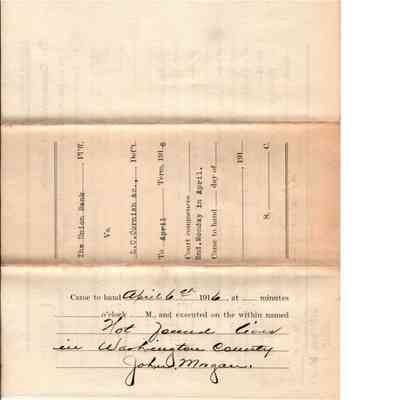 The Union Bank PLFF.
Vs.
L.C.Cornish &c., DeFt.
To April Term, 1916
Court commences
2nd.Monday in April.
Came to hand day of
191
S. C.
Came to hand April 6th 1916, at minutes
o'clock M., and executed on the within named
Not found lives
in Washington County
John Morgan.